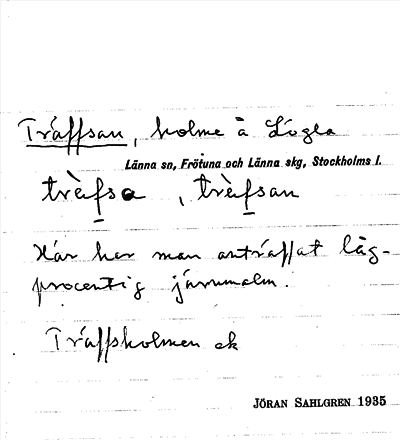 Träffsan, holme å Lögla
Länna sn, Frötuna och Länna skg, Stockholms l.
trä̀fsa, trä̀fsan
Här har man anträffat låg-
procentig järnmalm.
Träffsholmen ek
JÖRAN SAHLGREN 1935